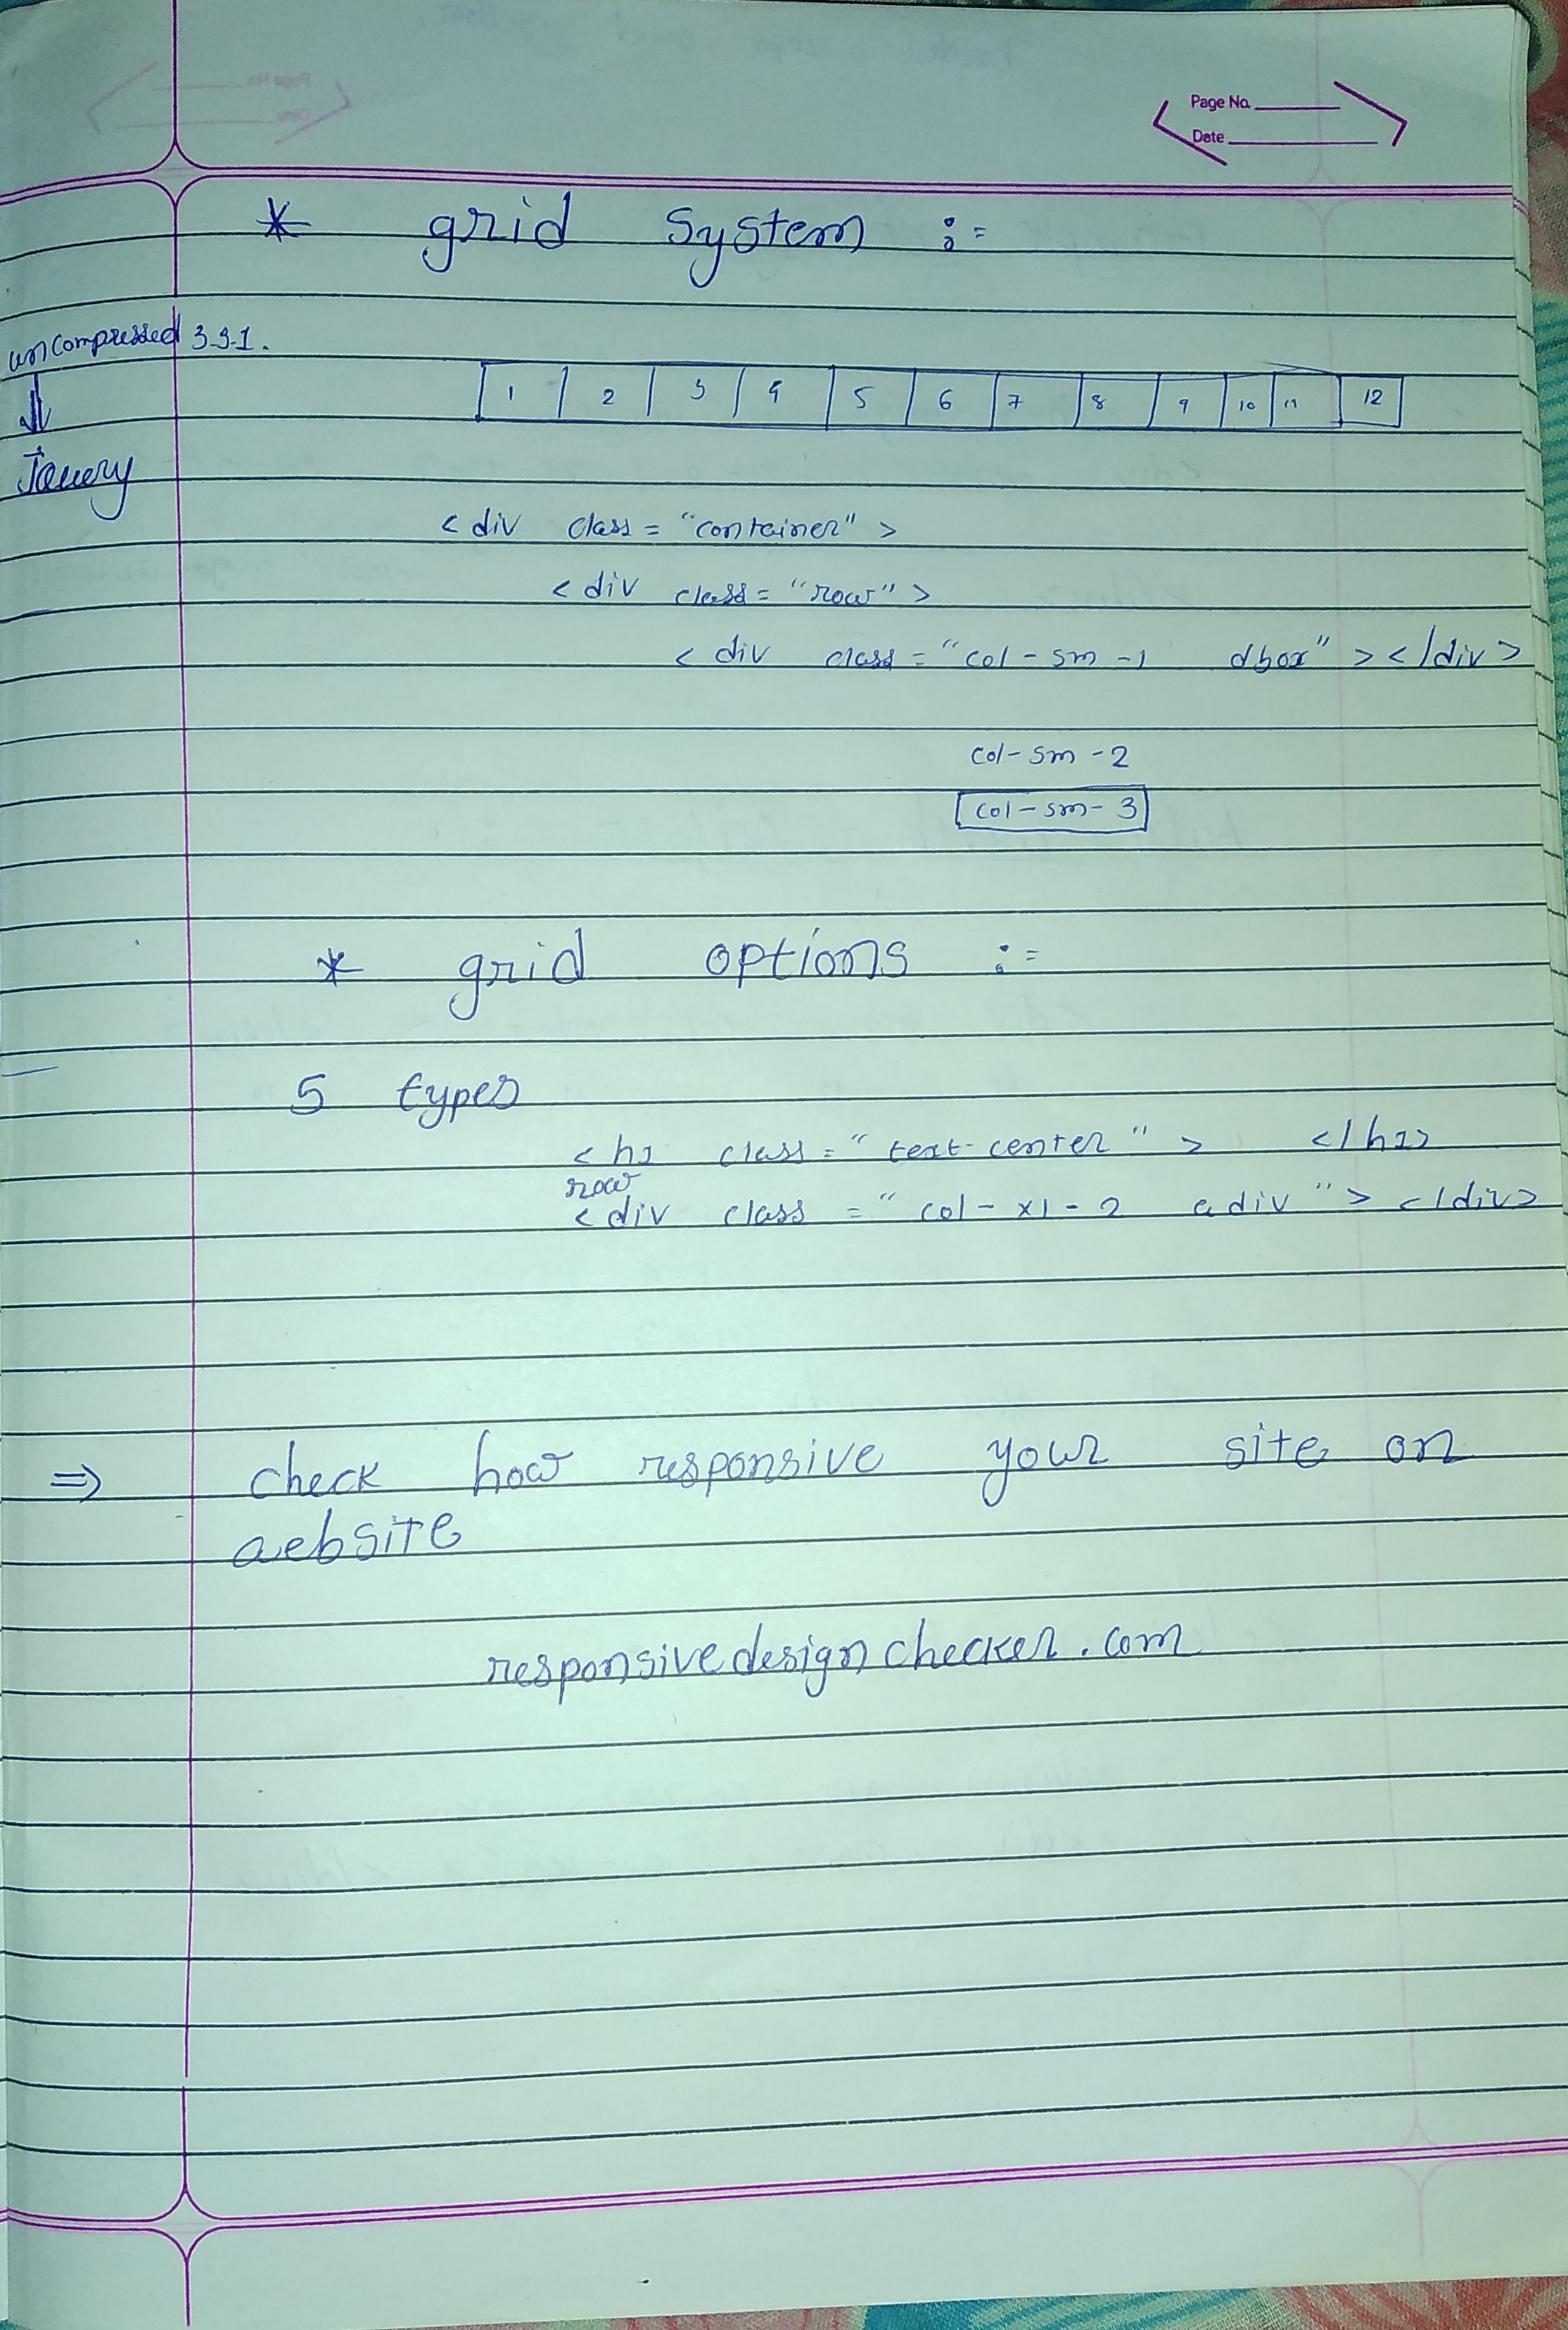 Page No.
Date
* grid system :=
uncompressed 3.3.1.
1 2 3 4 5 6 7 8 9 10 11 12
< div class = "container" >
< div class = "row" >
< div class = "col-sm-1 dbox" > </div>
col-sm-2
col-sm-3
* grid options :=
5 types
<h1 class = "text-center" > </h1>
row
<div class = "col-xl-2 adiv" > </div>
⇒ check how responsive your site on
website
responsivedesignchecker.com